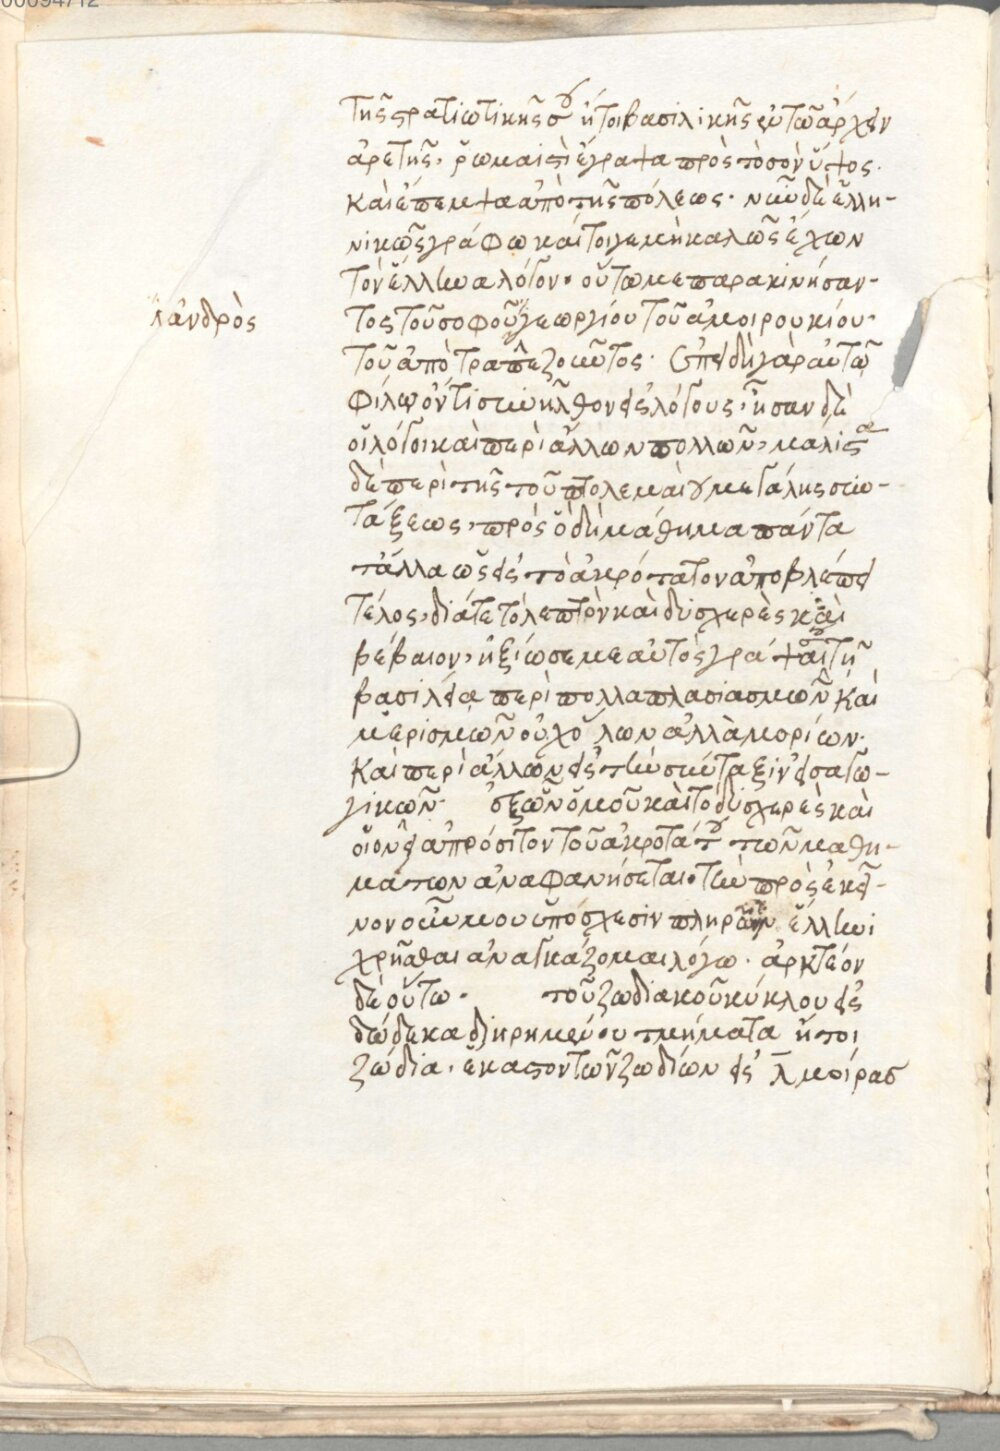 00094712
τῆς στρατιωτικῆς σου ἤτοι βασιλικῆς ἐν τῶ ἄρχειν
ἀρετῆς, ῥωμαιστὶ ἔγραψα πρὸς τὸ σὸν ὕψος.
καὶ ἔπεμψα ἀπὸ τῆς πόλεως. νῦν δὲ ἑλλη-
νικῶς γράφω καίτοιγε μὴ καλῶς ἔχων
τὸν ἕλληνα λόγον. οὕτω με παρακινήσαν-
τος τοῦ σοφοῦ γεωργίου τοῦ ἀμοιρουκίου.
ἀνδρὸς
τοῦ ἀπὸ τραπεζοῦντος. ἐπειδὴ γὰρ αὐτῶ
φίλω ὄντι συνῆλθον εἰς λόγους, ἦσαν δὲ
οἱ λόγοι καὶ περὶ ἄλλων πολλῶν, μάλιστα
δὲ περὶ τῆς τοῦ πτολεμαίου μεγάλης συν-
τάξεως, πρὸς ὃ δὴ μάθημα πάντα
τἄλλα ὡς εἰς τὸ ἀκρότατον ἀποβλέπει
τέλος, διά τε τὸ λεπτὸν καὶ δυσχερὲς καὶ
βέβαιον, ἠξίωσέ με αὐτὸς γράψαι τῆ
βασιλεία περὶ πολλαπλασιασμῶν καὶ
μερισμῶν οὐχ ὅλων ἀλλὰ μορίων.
καὶ περὶ ἄλλων εἰς τὴν σύνταξιν εἰσαγω-
γικῶν. ἐξ ὧν ὁμοῦ καὶ τὸ δυσχερὲς καὶ
οἱονεὶ ἀπρόσιτον τοῦ ἀκροτάτου τῶν μαθη-
μάτων ἀναφανήσεται. τὴν πρὸς ἐκεῖ-
νον οὖν μου ὑπόσχεσιν πληρῶν ἕλληνι
χρῆσθαι ἀναγκάζομαι λόγω. ἀρκτέον
δὲ οὕτω. τοῦ ζωδιακοῦ κύκλου εἰς
δώδεκα διηρημένου τμήματα ἤτοι
ζώδια. ἕκαστον τῶν ζωδίων εἰς λ̅ μοίρας